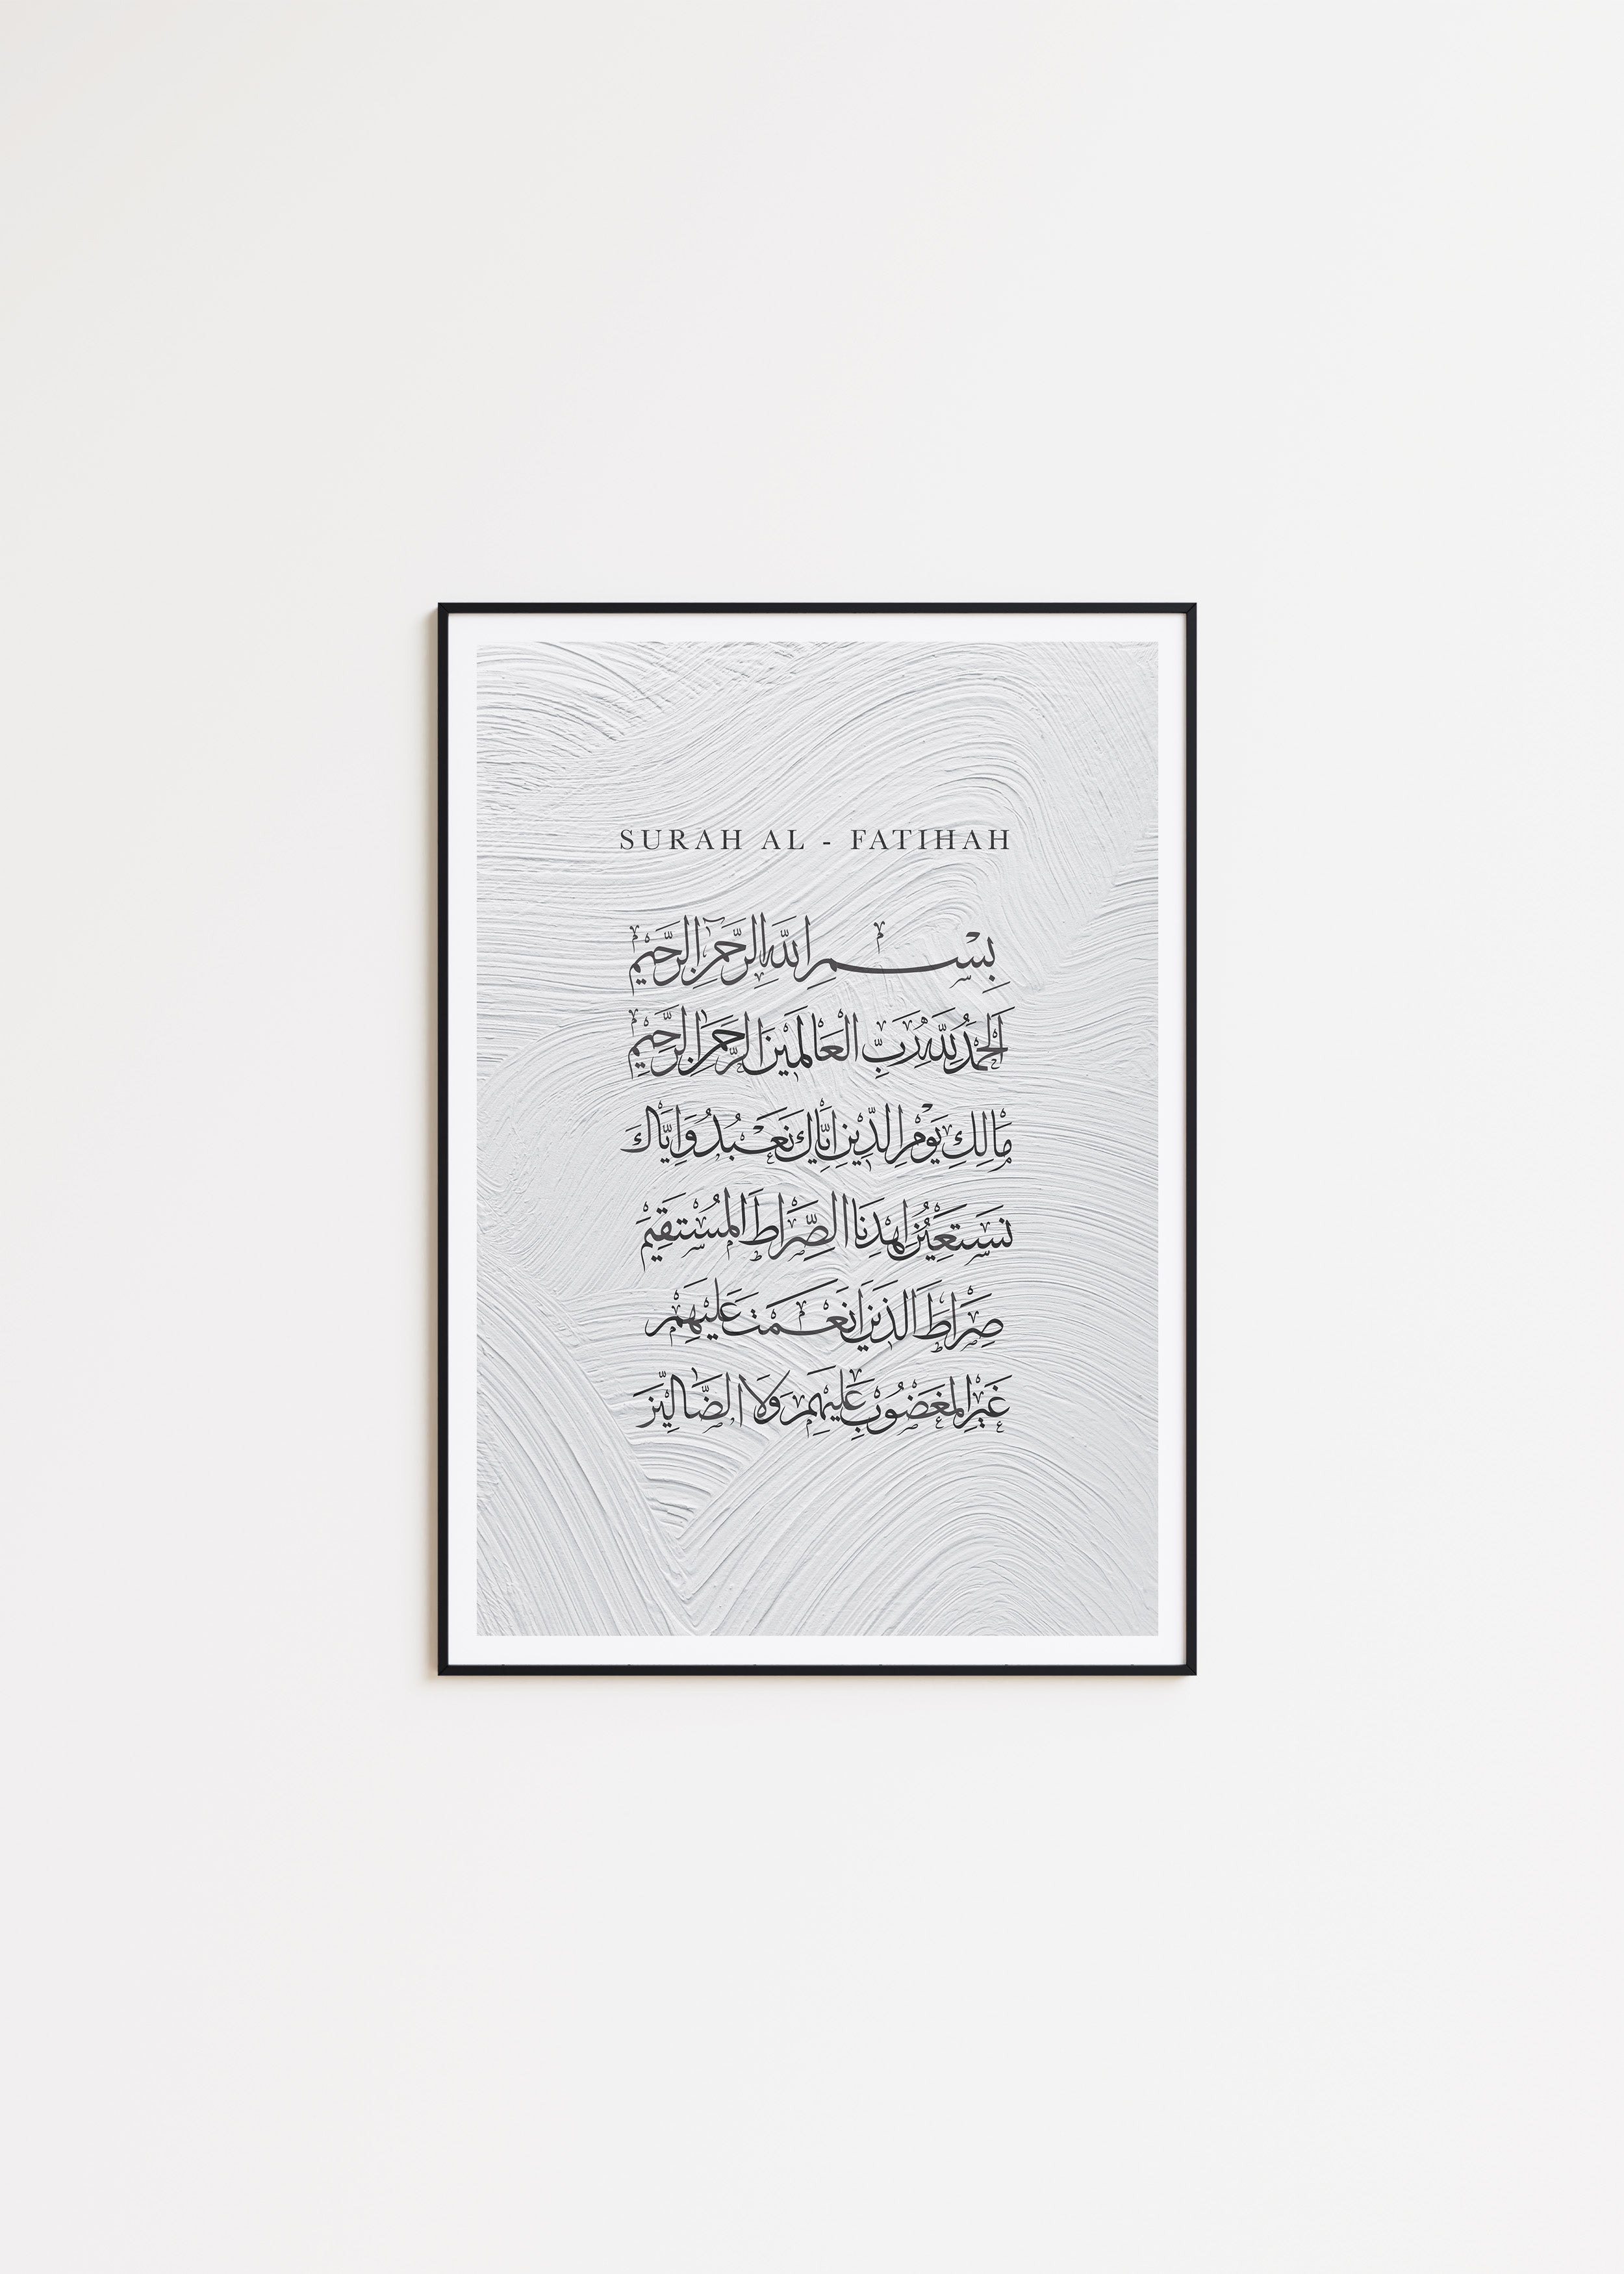 SURAH AL - FATIHAH
بِسْمِ اللَّهِ الرَّحْمَٰنِ الرَّحِيمِ
الْحَمْدُ لِلَّهِ رَبِّ الْعَالَمِينَ الرَّحْمَٰنِ الرَّحِيمِ
مَالِكِ يَوْمِ الدِّينِ إِيَّاكَ نَعْبُدُ وَإِيَّاكَ
نَسْتَعِينُ اهْدِنَا الصِّرَاطَ الْمُسْتَقِيمَ
صِرَاطَ الَّذِينَ أَنْعَمْتَ عَلَيْهِمْ
غَيْرِ الْمَغْضُوبِ عَلَيْهِمْ وَلَا الضَّالِّينَ